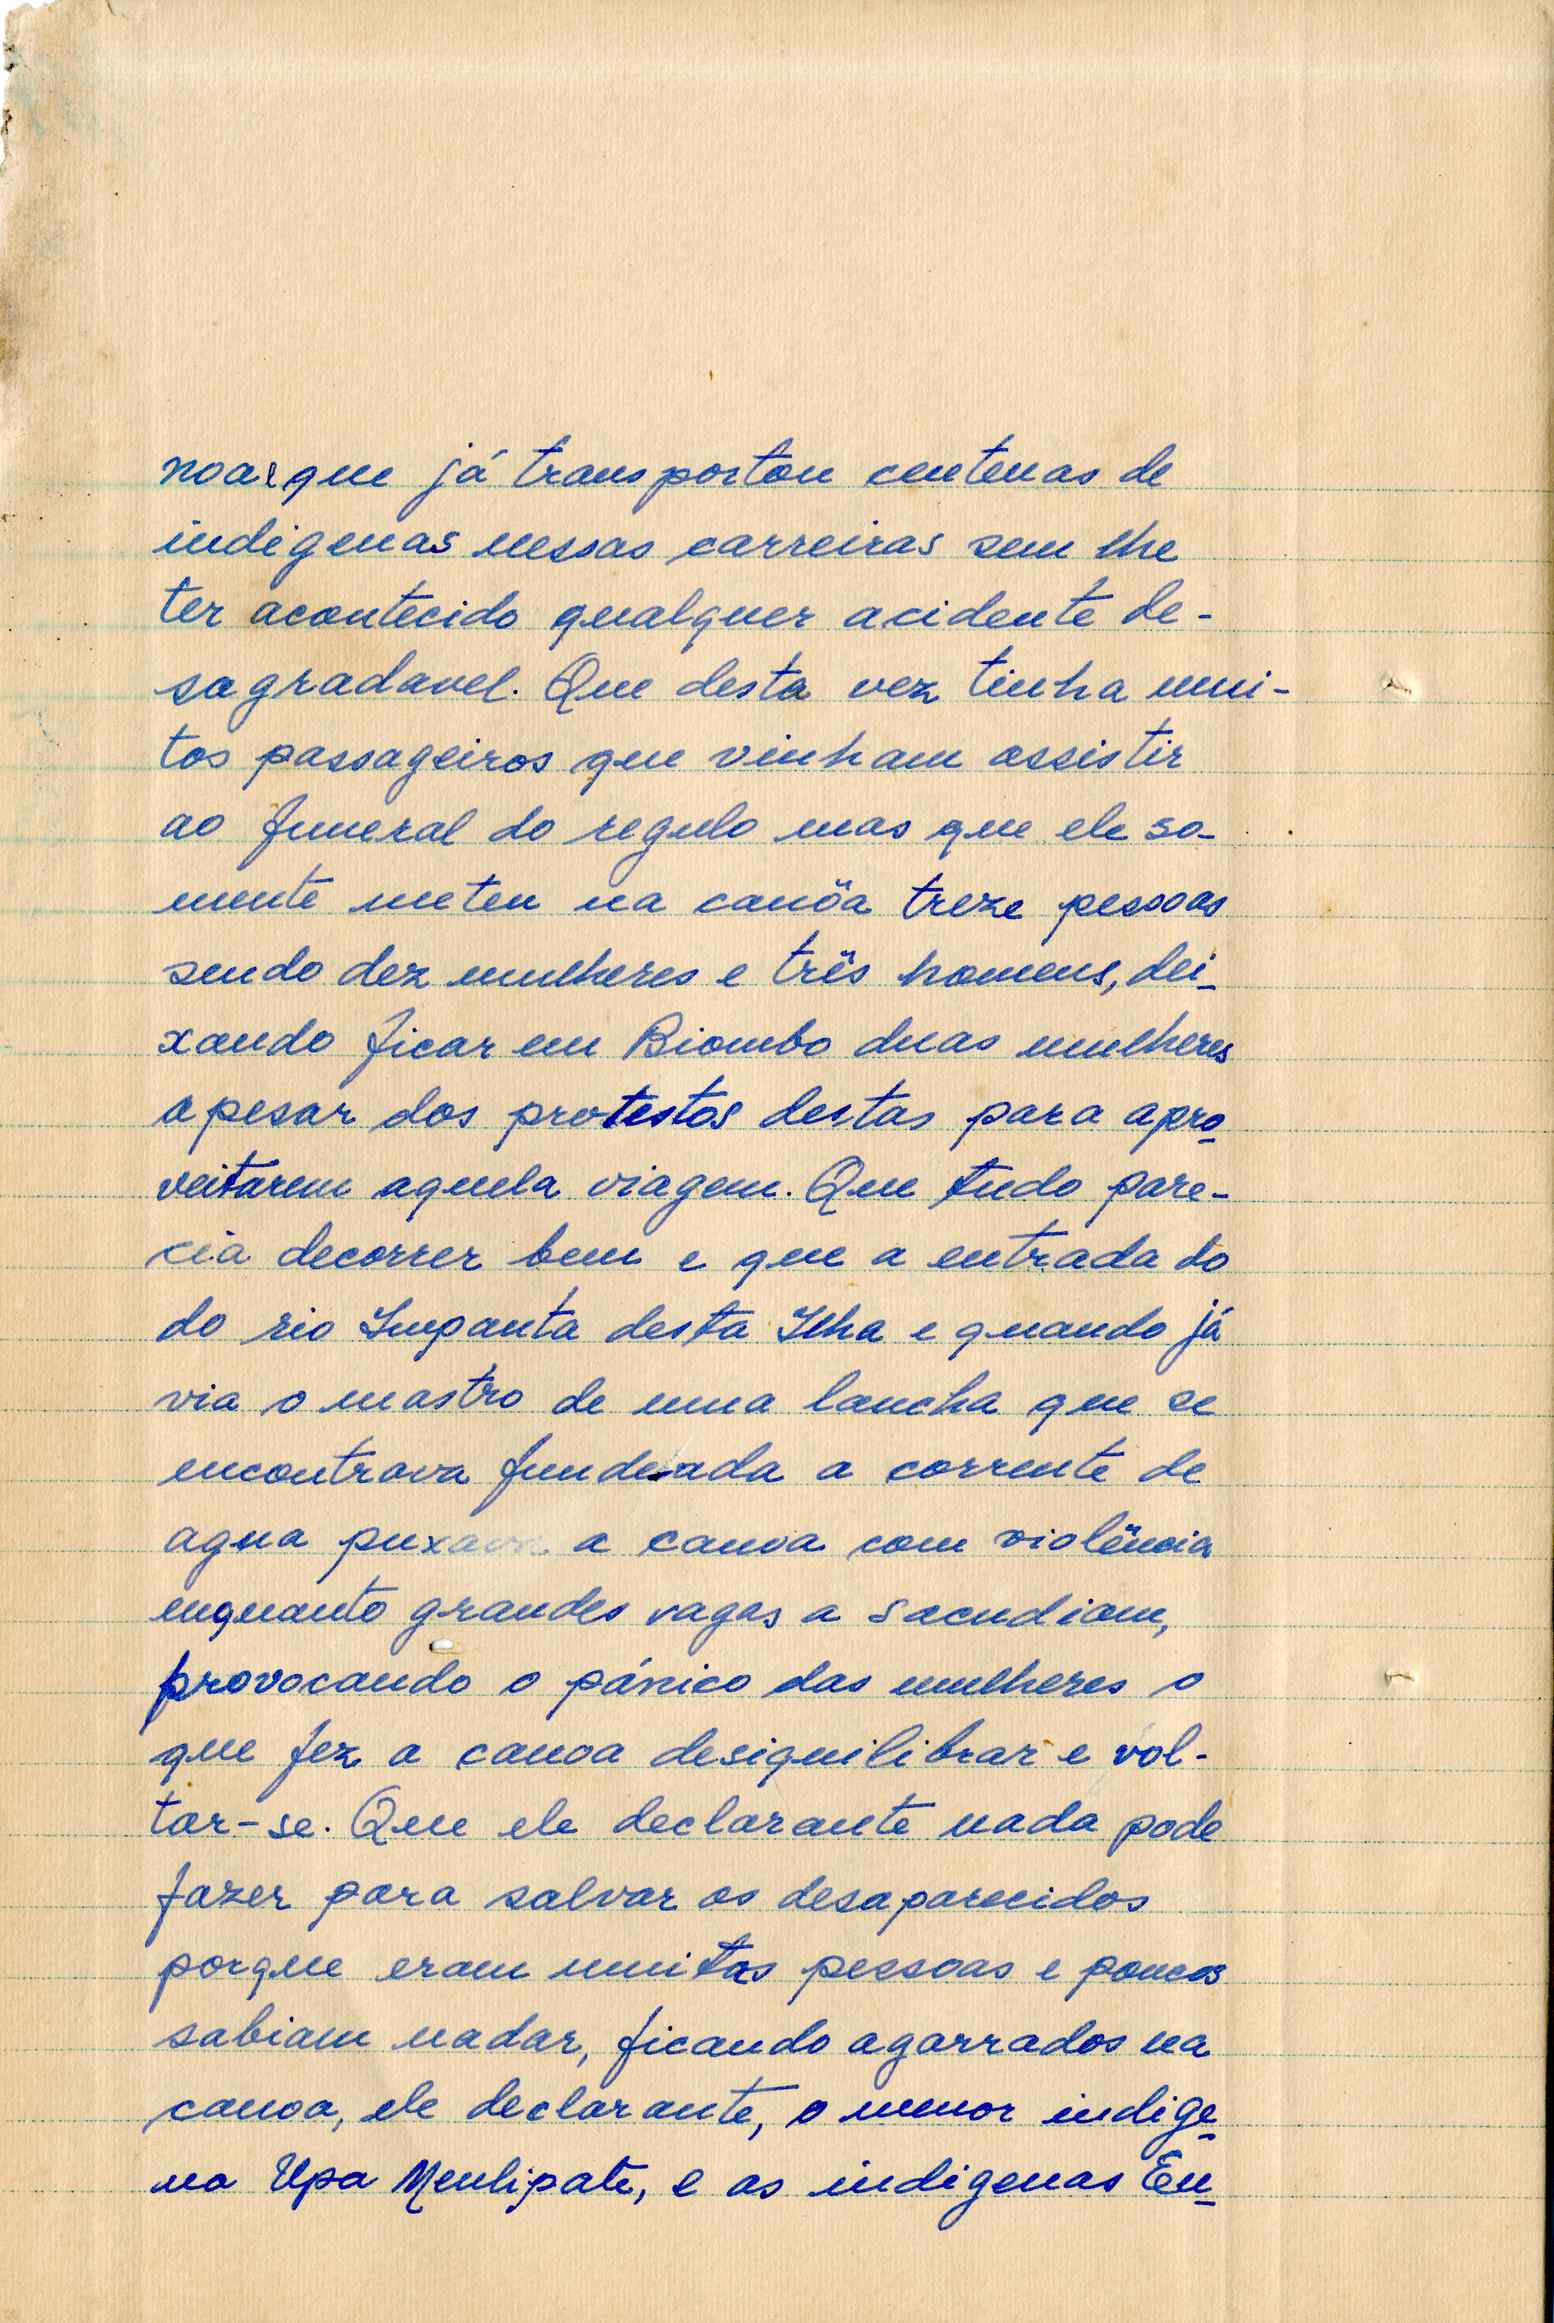 noas que já transportou centenas de
indigenas nessas carreiras sem lhe
ter acontecido qualquer acidente de-
sagradavel. Que desta vez tinha mui-
tos passageiros que vinham assistir
ao funeral do regulo mas que ele so-
mente meteu na canôa treze pessoas
sendo dez mulheres e três homens, dei-
xando ficar em Biombo duas mulheres
apesar dos protestos destas para apro-
veitarem aquela viagem. Que tudo pare-
cia decorrer bem e que a entrada do
do rio Impanta desta Ilha e quando já
via o mastro de uma lancha que se
encontrava fundeada a corrente de
agua puxava a canoa com violência
enquanto grandes vagas a sacudiam,
provocando o pánico das mulheres o
que fez a canoa desiquilibrar e vol-
tar-se. Que ele declarante nada pode
fazer para salvar os desaparecidos
porque eram muitas pessoas e poucos
sabiam nadar, ficando agarrados na
canoa, ele declarante, o menor indige-
na Upa Menlipate, e as indigenas En-